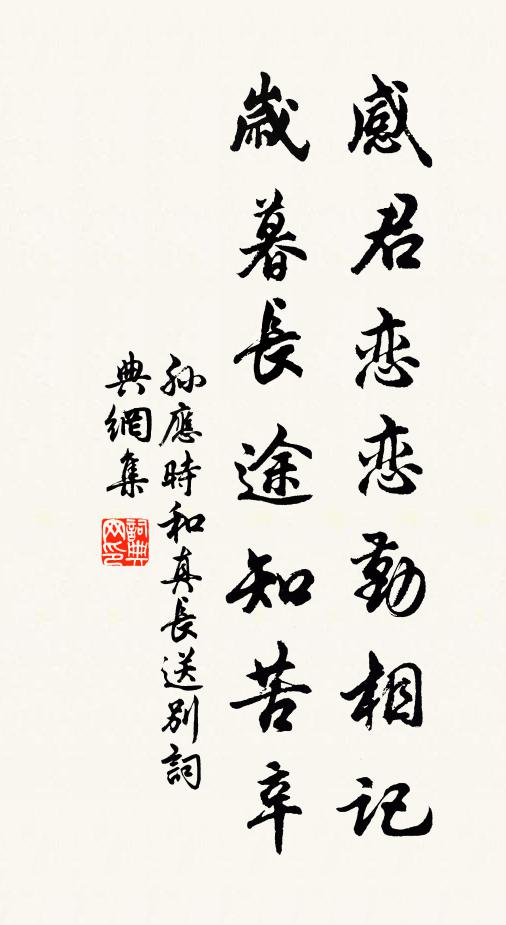 感君恋恋勤相記
歲暮長途知苦辛
孙應時和真長送别詞
典網集
詞典
网印